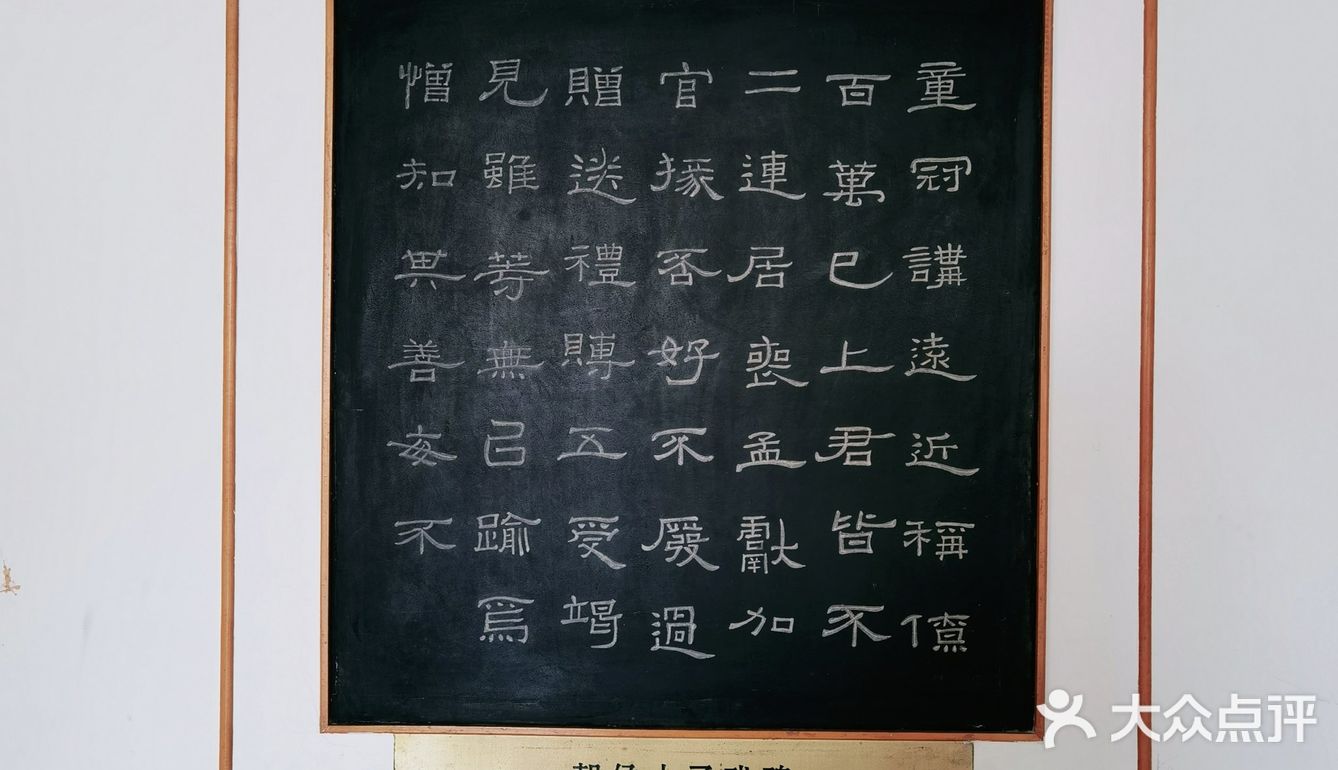 童冠講遠近稱僚
百萬已上君皆不
二連居喪孟獻加
官據否好不廢過
贈送禮賻五受竭
見雖等無己踰焉
憎知其善毎不
大众点评